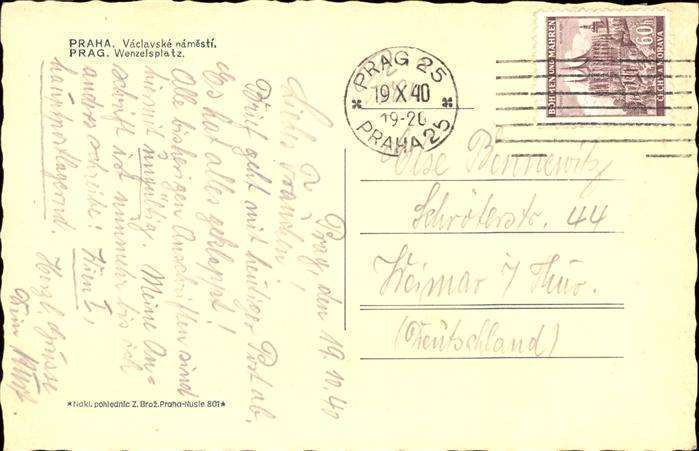 PRAHA. Václavské náměstí.
PRAG. Wenzelsplatz.
PRAG 25
19 X 40
19-20
PRAHA 25
60h
BÖHMEN UND MÄHREN
ČECHY A MORAVA
Prag, den 19.10.40
Liebes Frauchen!
Brief geht mit heutiger Post ab.
Es hat alles geklappt!
Alle bisherigen Anschriften sind
hiermit ungültig. Meine An=
schrift ist nunmehr bis ich
andres schreibe: Wien I,
hauptpostlagernd.
Herzl. Grüsse
Dein
Else Bennewitz
Schröterstr. 44
Weimar i/Thür.
(Deutschland)
*Nákl. pohlednic Z. Brož. Praha-Nusle 801*